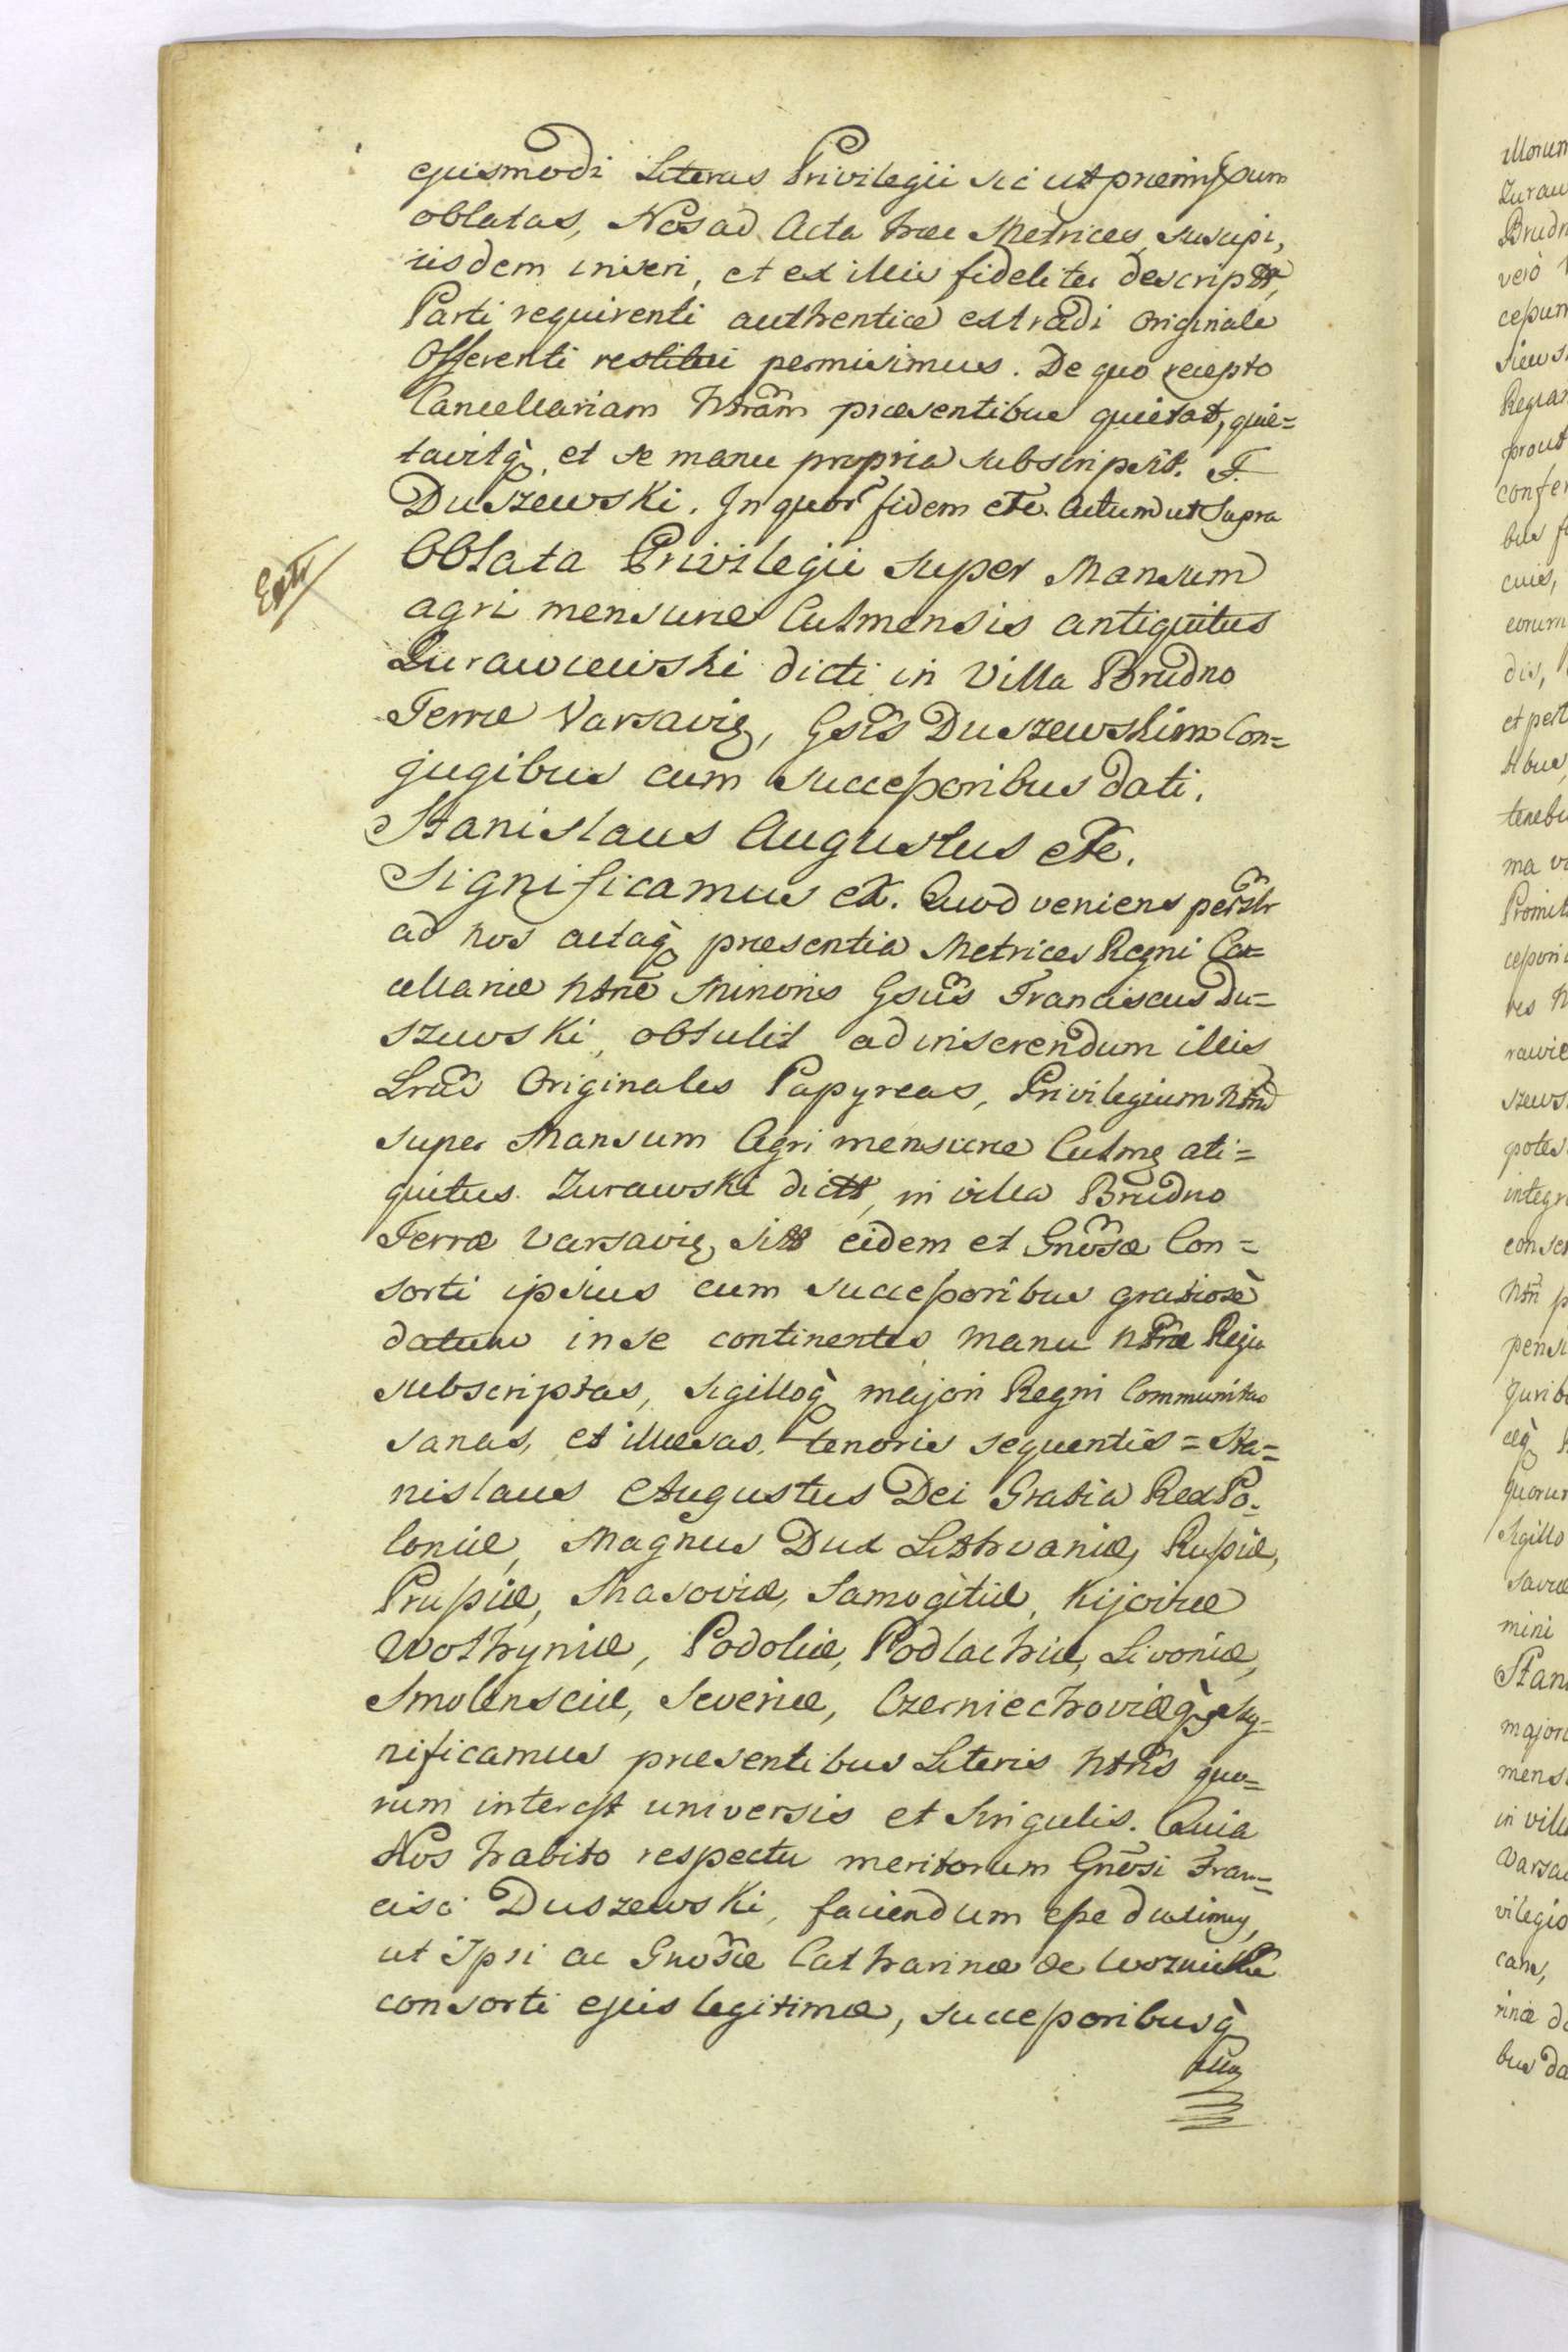 ejusmodi Literas Privilegii sic ut præmissum
oblatas, Nos ad Acta hæc Metrices suscipi,
iisdem inseri, et ex illis fideliter descript
Parti requirenti authentice extradi originale
Offerenti restitui permisimus. De quo recepto
Cancellariam Ntram præsentibus quietat, quie=
tavitq, et se manu propria subscripsit. F.
Duszewski. In quor fidem etc. Actum ut Supra
Extr
Oblata Privilegii super Mansum
agri mensuræ Culmensis antiquitus
Zurawiewski dicti in Villa Brudno
Terræ Varsavie, Gsis Duszewskim Con=
jugibus cum successoribus dati.
Stanislaus Augustus etc.
Significamus etc. Quod veniens perslr
ad nos actaq præsentia Metrices Regni Can=
cellariæ Ntræ Minoris Gsus Franciscus Du=
szewski, obtulit ad inserendum illis
Lras Originales Papyreas, Privilegium Ntrū
super Mansum Agri mensuræ Culme ati=
quitus Zurawski dict, in villa Brudno
Terræ Varsavie, sit eidem et Gnosæ Con=
sorti ipsius cum successoribus gratiosè
datum in se continentes manu Ntra Regia
subscriptas, sigilloq majori Regni Communitas
sanas, et illæsas, tenoris sequentis = Sta=
nislaus Augustus Dei Gratia Rex Po=
loniæ, Magnus Dux Lithvaniæ, Russiæ,
Prussiæ, Masoviæ, Samogitiæ, Kijoviæ
Wolhyniæ, Podoliæ, Podlachiæ, Livoniæ,
Smolensciæ, Severiæ, Czerniechoviæq Sig=
nificamus præsentibus Literis Ntris quo=
rum interest universis et singulis. Quia
Nos habito respectu meritorum Gnosi Fran=
cisci Duszewski, faciendum esse duximus,
ut Ipsi ac Gnosæ Catharinæ de
consorti ejus legitimæ, successoribusq